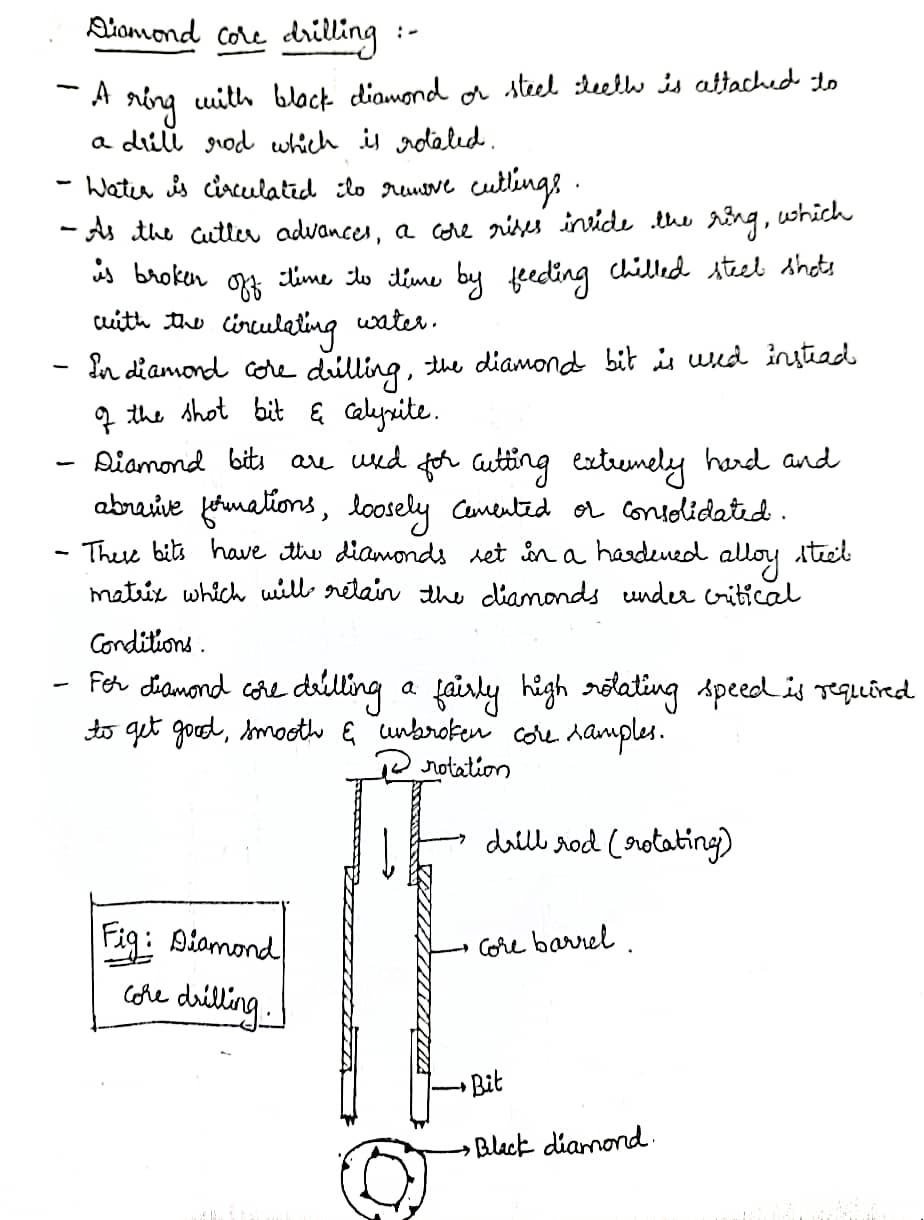 Diamond core drilling :-
- A ring with black diamond or steel teeth is attached to
a drill rod which is rotated.
- Water is circulated to remove cuttings.
- As the cutter advances, a core rises inside the ring, which
is broken off time to time by feeding chilled steel shots
with the circulating water.
- In diamond core drilling, the diamond bit is used instead
of the shot bit & calyxite.
- Diamond bits are used for cutting extremely hard and
abrasive formations, loosely cemented or consolidated.
- These bits have the diamonds set in a hardened alloy steel
matrix which will retain the diamonds under critical
Conditions.
- For diamond core drilling a fairly high rotating speed is required
to get good, smooth & unbroken core samples.
rotation
drill rod (rotating)
Fig: Diamond
core drilling.
Core barrel.
Bit
Black diamond.